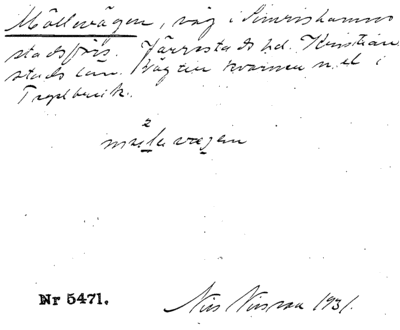 Möllevägen, väg i Simrishamns
stadsförs. Järrestads hd. Kristian
stads län. Väg till kvarnen n.el i
Tegelbruk.
2
møllevægen
Nr 5471.
Nils Nilsson 1931.